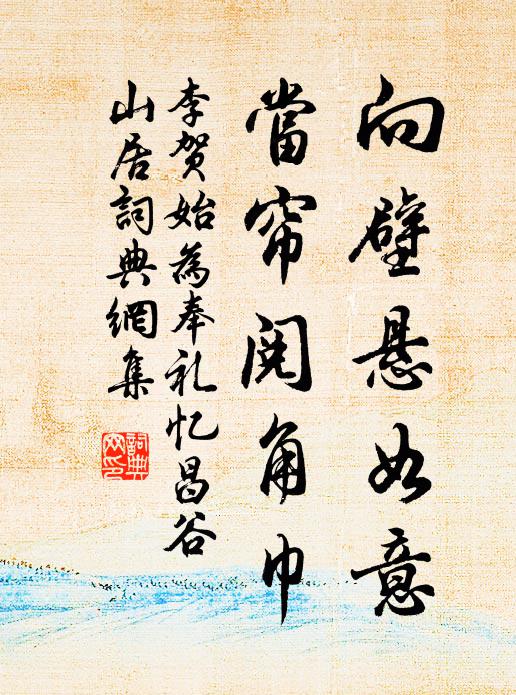 向壁悬如意
當帘閱角巾
李賀始為奉礼忆昌谷
山居詞典網集
詞典
网印